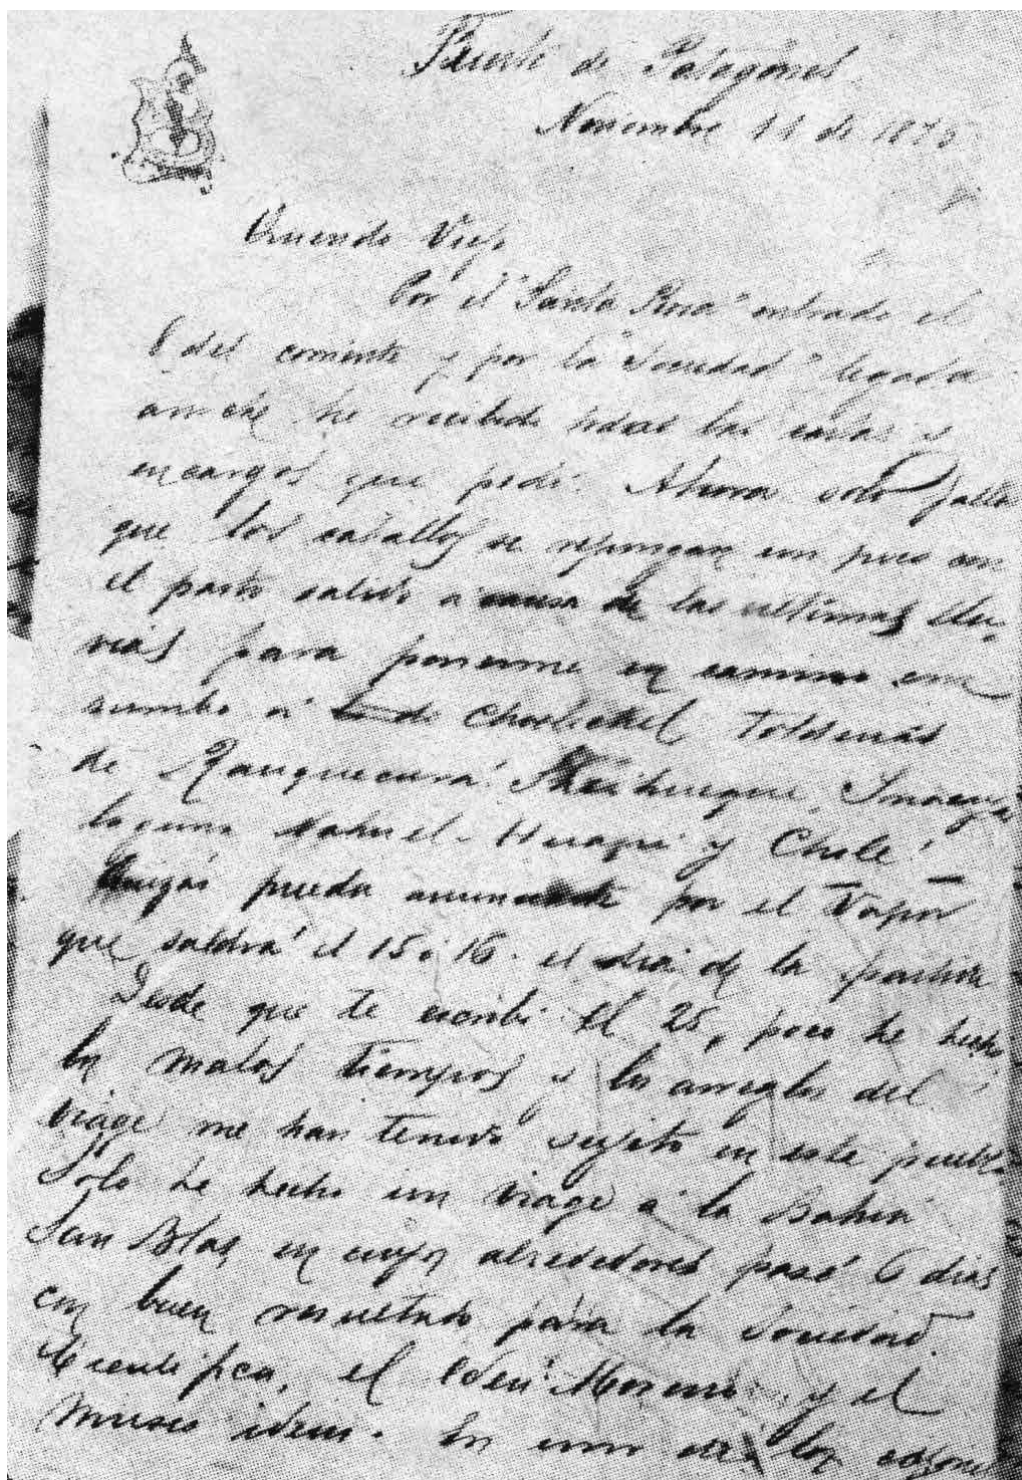 Fuerte de Patagones
Noviembre 11 de 1875
Querido Viejo
Por el "Santa Rosa" entrado el
8 del corriente y por la "Sociedad" llegada
anoche he recibido todas las cartas y
encargos que pedí. Ahora solo falta
que los caballos se repongan un poco con
el pasto salido a causa de las ultimas llu-
vias para ponerme en camino con
rumbo á de Choelechel Tolderias
de Ranquecurá. Shaihueque,
laguna Nahuel-Huapí y Chile!
Quizás pueda anunciarte por el Vapor
que saldrá el 15 ó 16. el dia de la partida
Desde que te escribi el 25, poco he hecho,
los malos tiempos y los arreglos del
viage me han tenido sujeto en este pueblo
Solo he hecho un viage á la Bahia
San Blas en cuyos alrededores pasé 6 dias
con buen resultado para la Sociedad
Cientifica, el Moreno y el
Museo idem. En uno de los